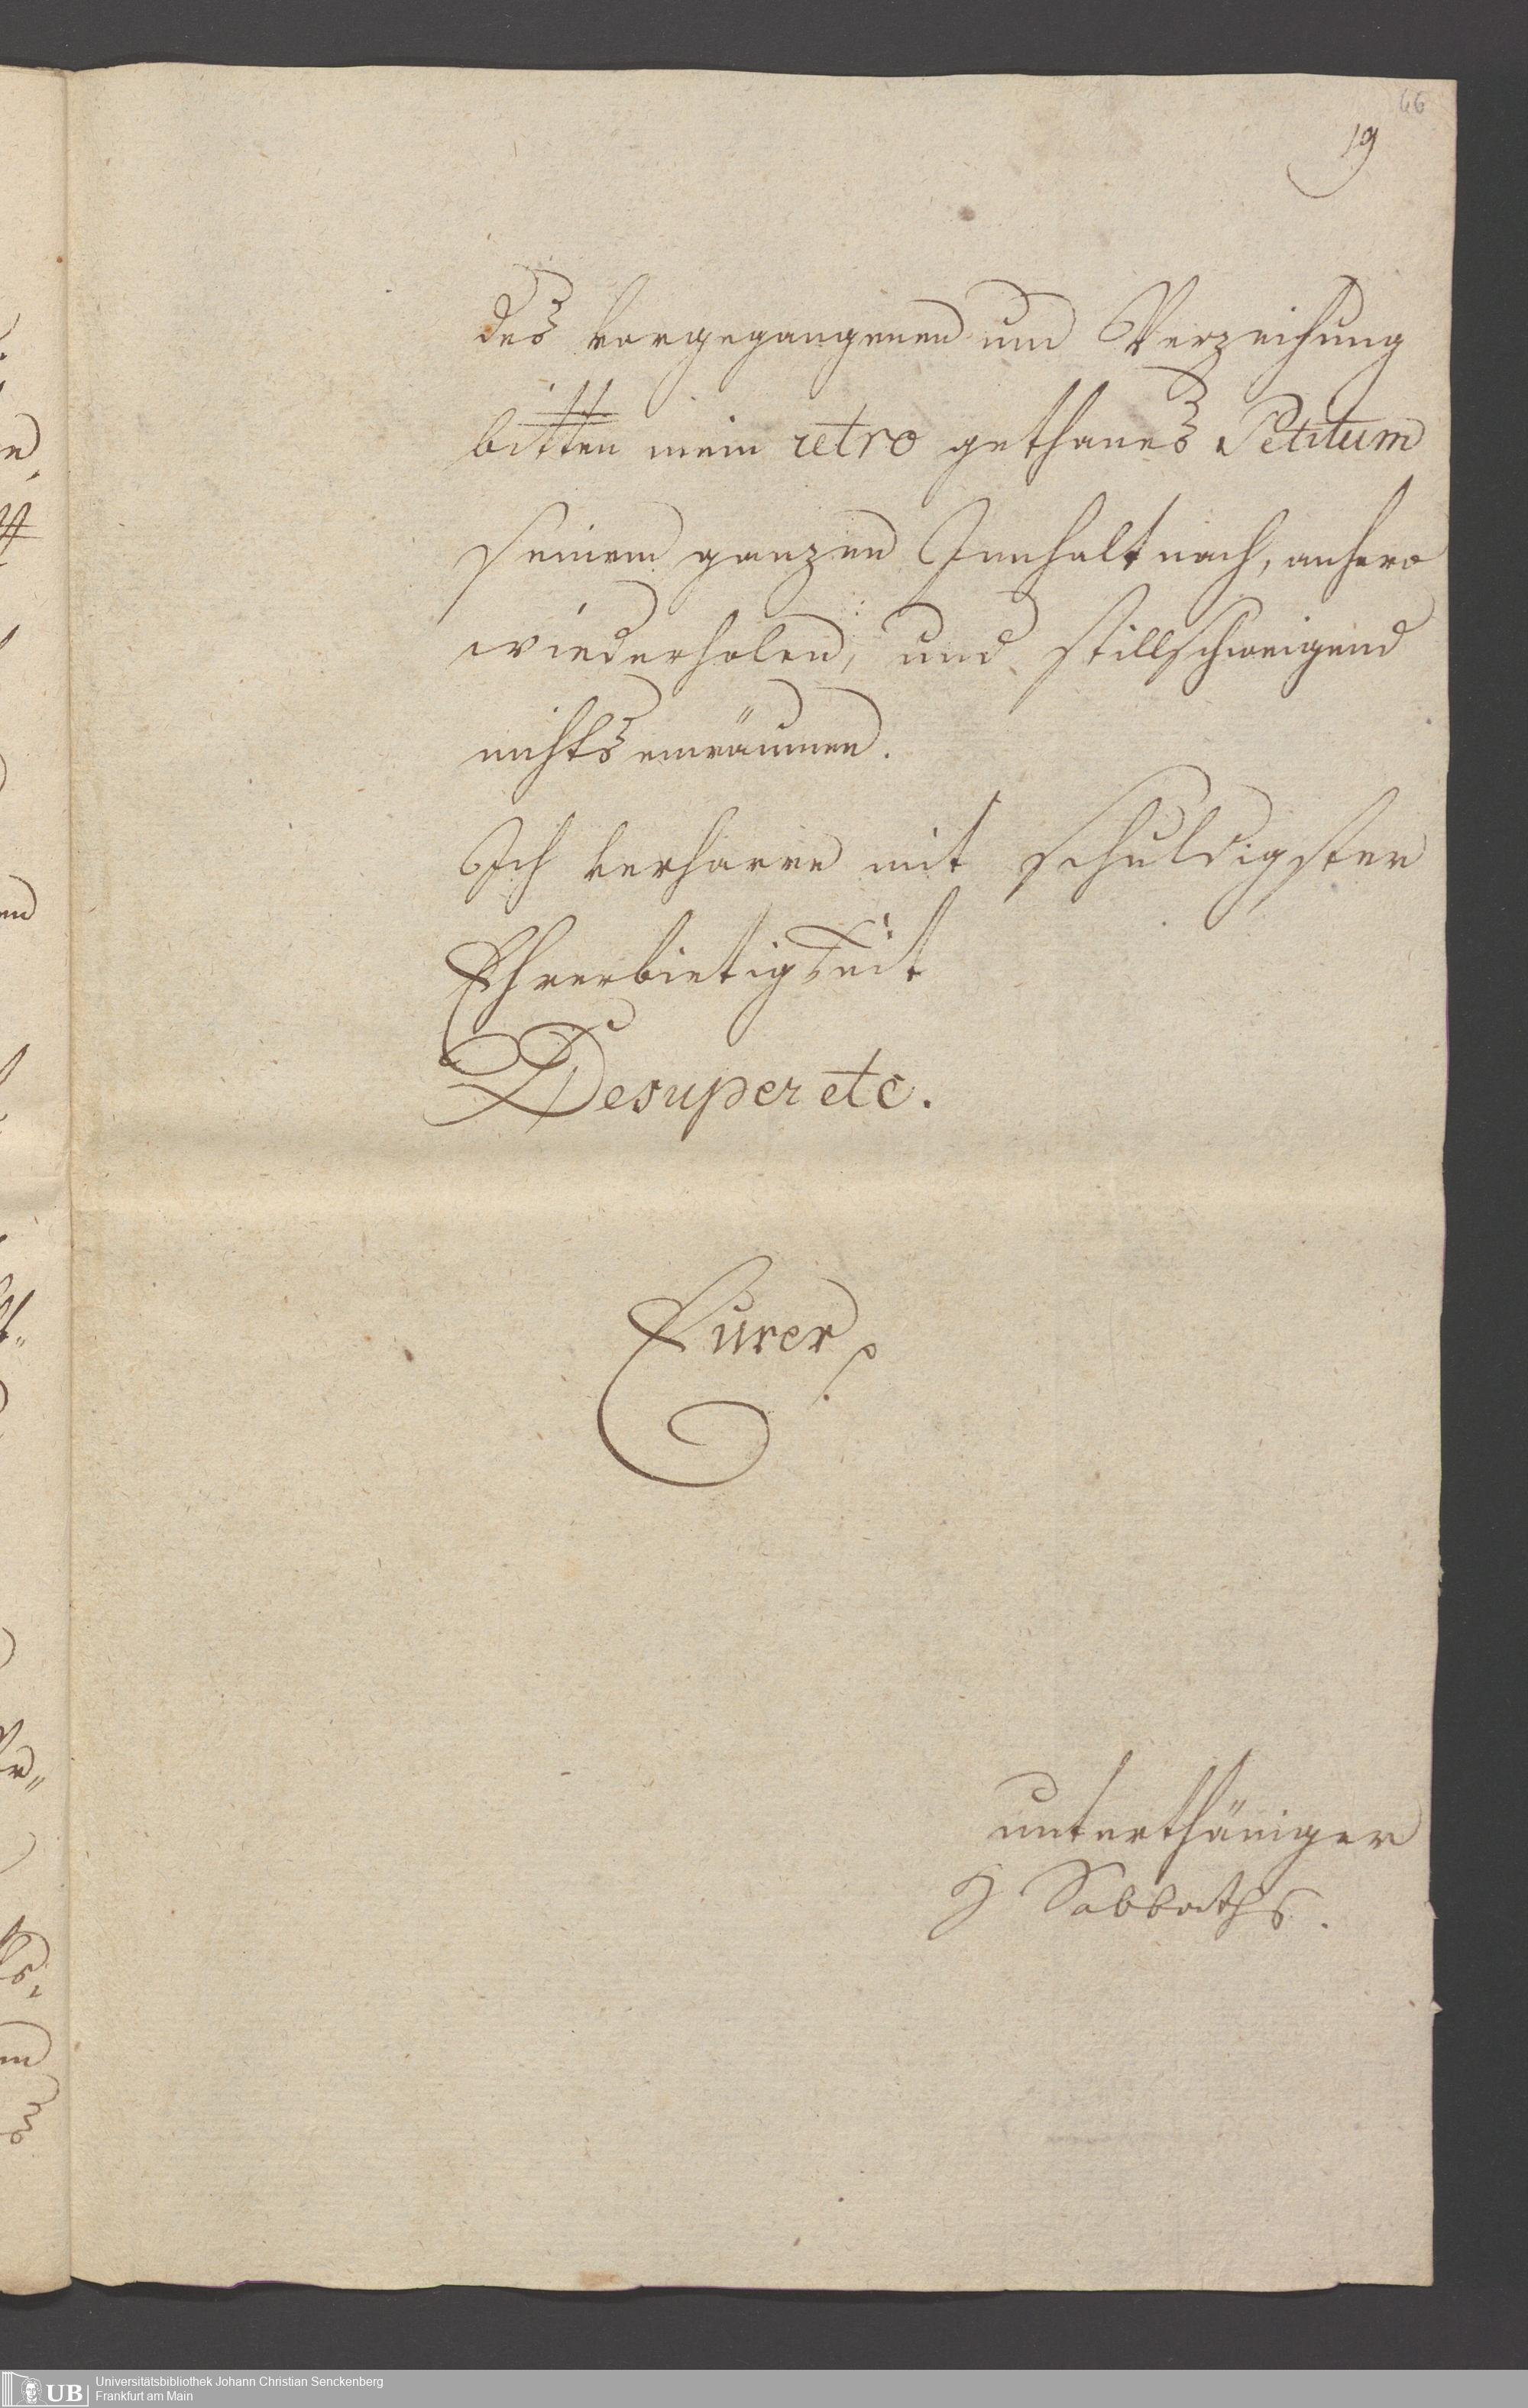 66
19
des vorgegangenen um Verzeihung
bitten mein retro gethanes Petitum
seinem ganzen Innhalt nach, anhero
wiederholen, und stillschweigend
nichts einräumen.
Ich verharre mit schuldigster
Ehrerbietigkeit
Desuper etc.
Eurer
unterthäniger
Sabbaths.
UB Universitätsbibliothek Johann Christian Senckenberg
Frankfurt am Main